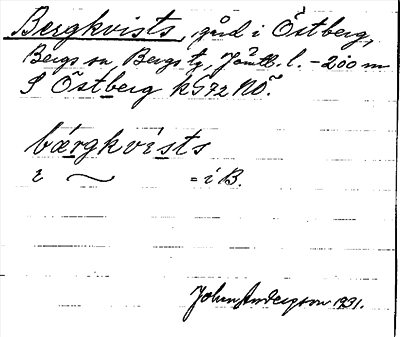 Bergkvists, gård i Östberg,
Bergs sn, Bergs tg, Jämtl. l. – 200 m
S Östberg k572 NÖ.
bærgkvists
i ~ = i B.
Johan Andersson 1931.